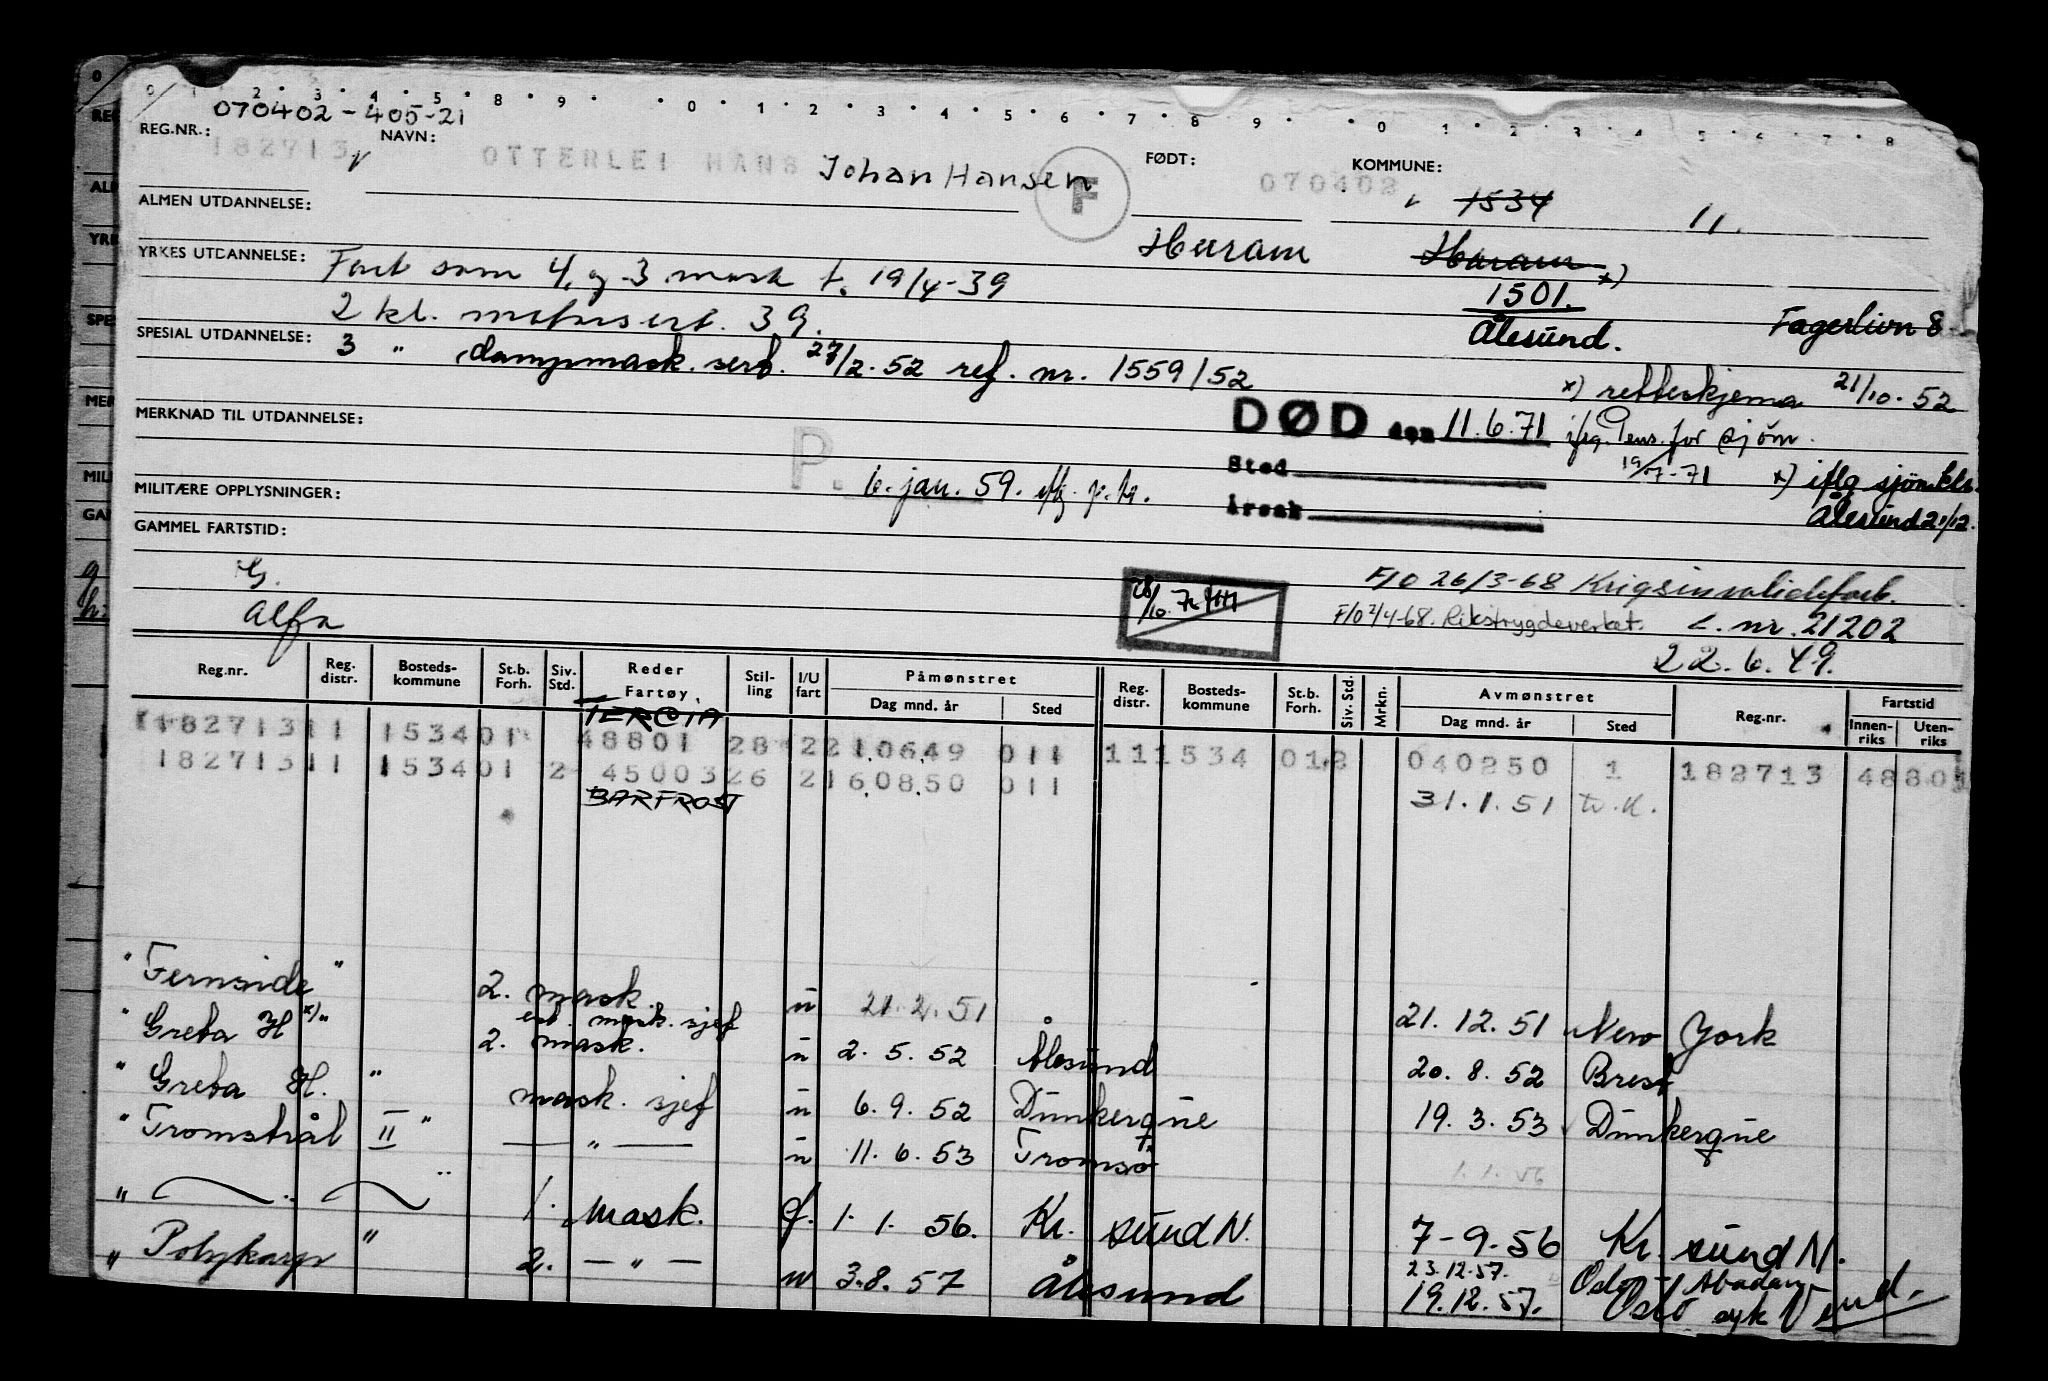 0 1 2 3 4 5 8 9 0 1 2 3 4 5 6 7 8 9 0 1 2 3 4 5 6 7 8
070402-405-21
REG.NR.: 182713 NAVN: OTTERLEI HANS Johan Hansen F FØDT: 070402 KOMMUNE: 1534 11.
ALMEN UTDANNELSE: Haram Haram x)
YRKES UTDANNELSE: Fart som 4. og 3 mask f. 19/4-39 1501.
2 kl. motorsert. 39. Ålesund. Fagerlivn 8
SPESIAL UTDANNELSE: 3 " dampmask. sert. 27/2-52 ref. nr. 1559/52
x) retteskjema 21/10-52
MERKNAD TIL UTDANNELSE: DØD den 11.6.71 iflg. Pens. for sjøm.
19/7-71
Sted x) iflg sjøm.ktr.
MILITÆRE OPPLYSNINGER: P. 6. jan. 59. Årsak Ålesund 21/12.
GAMMEL FARTSTID:
G.
Alfa
28/10. 72
F/O 26/3-68 Krigsinvalideforb.
F/O 2/4-68. Rikstrygdeverket. L. nr. 21202
22.6.49.
Reg.nr. Reg. distr. Bosteds-kommune St.b. Forh. Siv. Std. Reder Fartøy Stil-ling I/U fart Påmønstret Dag mnd. år Sted Reg. distr. Bosteds-kommune St.b. Forh. Siv. Std. Mrkn. Avmønstret Dag mnd. år Sted Reg.nr. Fartstid Innen-riks Uten-riks
TERCIA
182713 11 1534 01 48801 28 2 210649 011 11 1534 01 2 040250 1 182713 48801
182713 11 1534 01 2 45003 26 2 160850 011 31.1.51
BARFROST
"Fernside" 2. mask. u 21.2.51 21.12.51 New York
est. mask. sjef
"Greta H x)" 2. mask. u 2.5.52 Ålesund 20.8.52 Brest
"Greta H." mask. sjef u 6.9.52 Dunkerque 19.3.53 Dunkerque
"Tromstrål II" — " — u 11.6.53 Tromsø 1.1.56
" — " — " 1. mask. f. 1.1.56. Kr. sund N. 7-9-56 Kr. sund N.
"Polykarp" 2. — " — u 3.8.57 Ålesund 23.12.57. Oslo - Abadan
19.12.57. Oslo syk Vend.